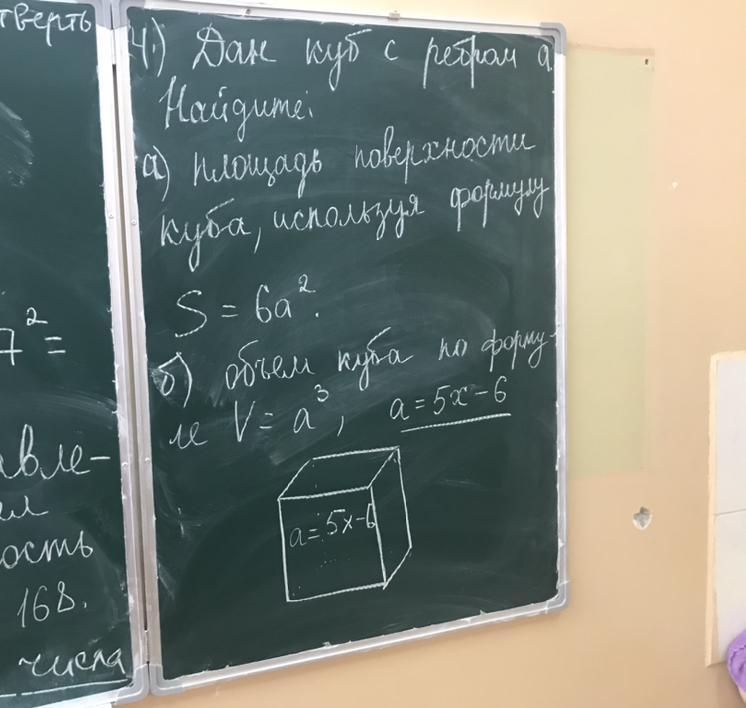 тверть
7² =
авле-
ел
ость
168.
числа
4.) Дан куб с ребром а.
Найдите:
а) площадь поверхности
куба, используя формулу
S = 6a².
б) объем куба по форму-
ле V = a³, a = 5x - 6
a = 5x - 6